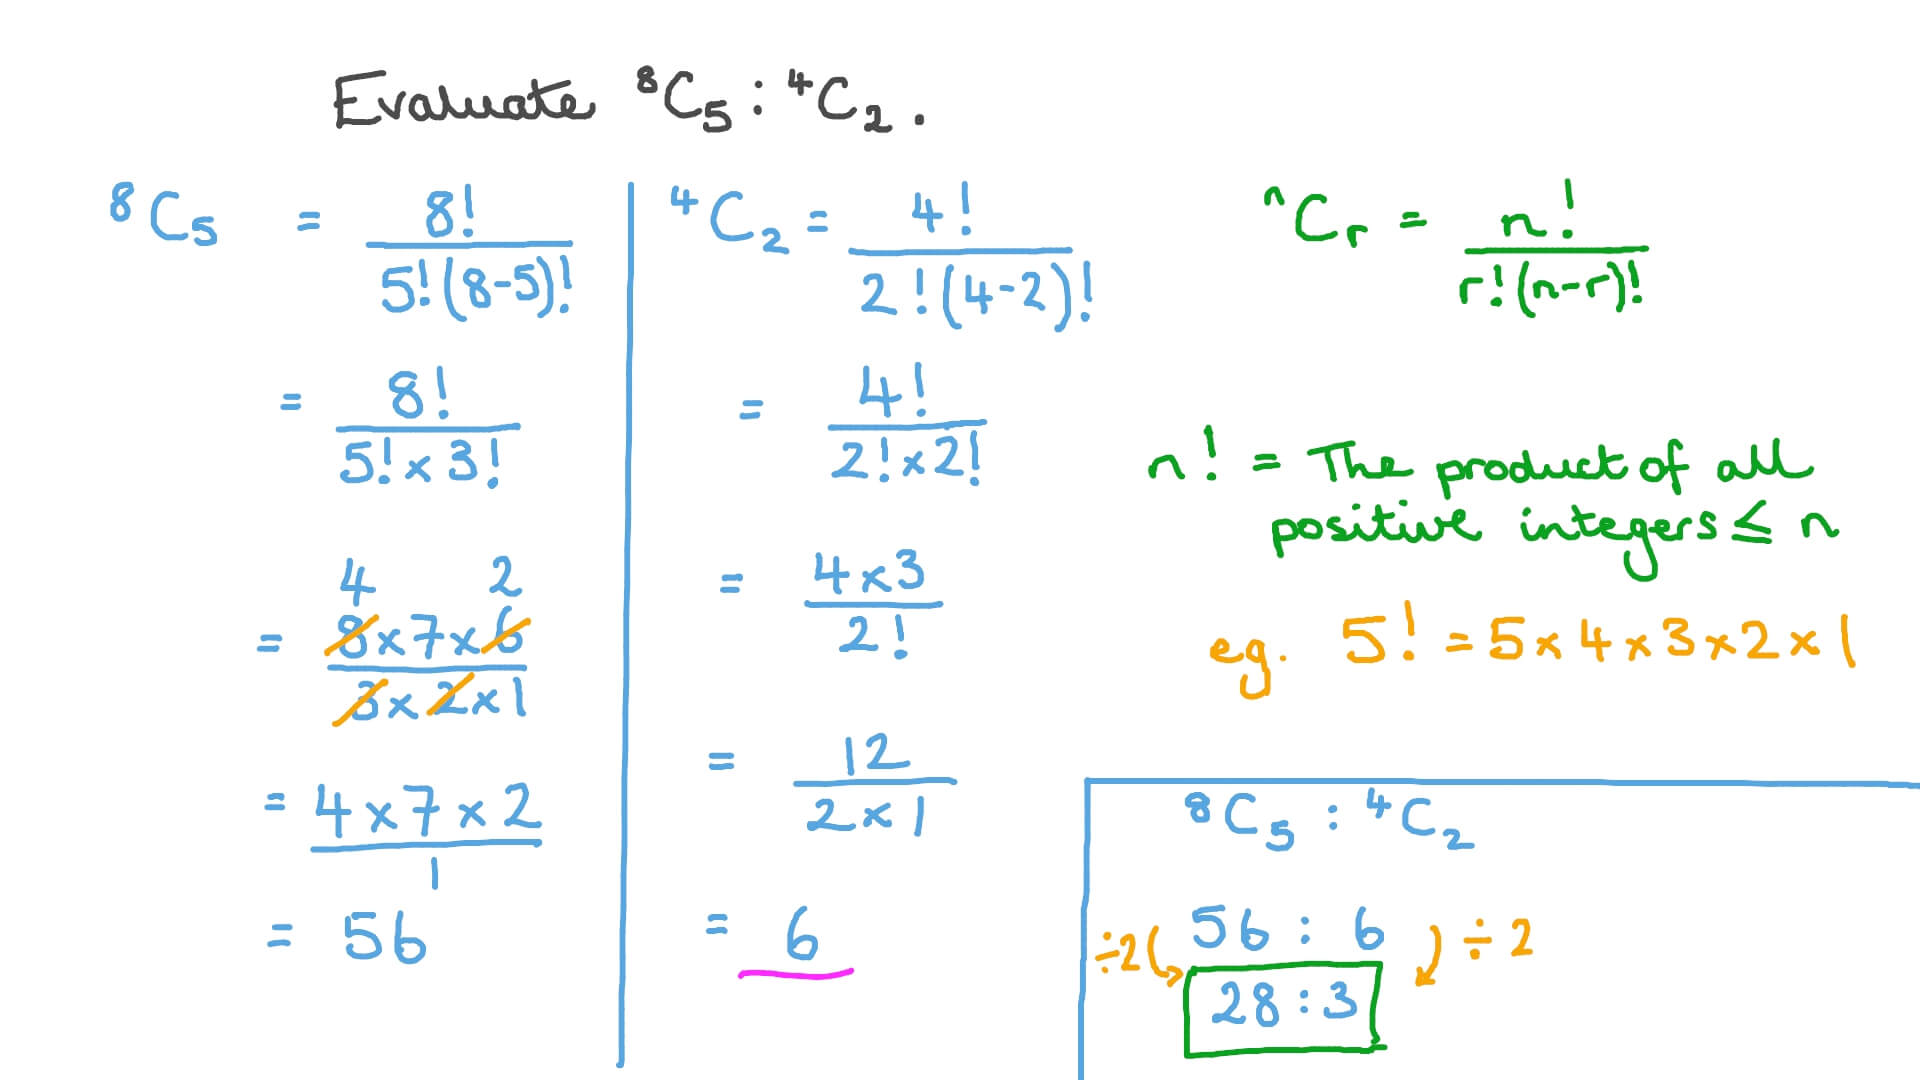 Evaluate ⁸C₅ : ⁴C₂.
⁸C₅ = 8!
5!(8-5)!
= 8!
5! × 3!
4 2
= 8×7×6
3×2×1
= 4×7×2
1
= 56
⁴C₂ = 4!
2!(4-2)!
= 4!
2!×2!
= 4×3
2!
= 12
2×1
= 6
ⁿCᵣ = n!
r!(n-r)!
n! = The product of all
positive integers ≤ n
eg. 5! = 5×4×3×2×1
⁸C₅ : ⁴C₂
÷2 56 : 6 ÷2
28 : 3